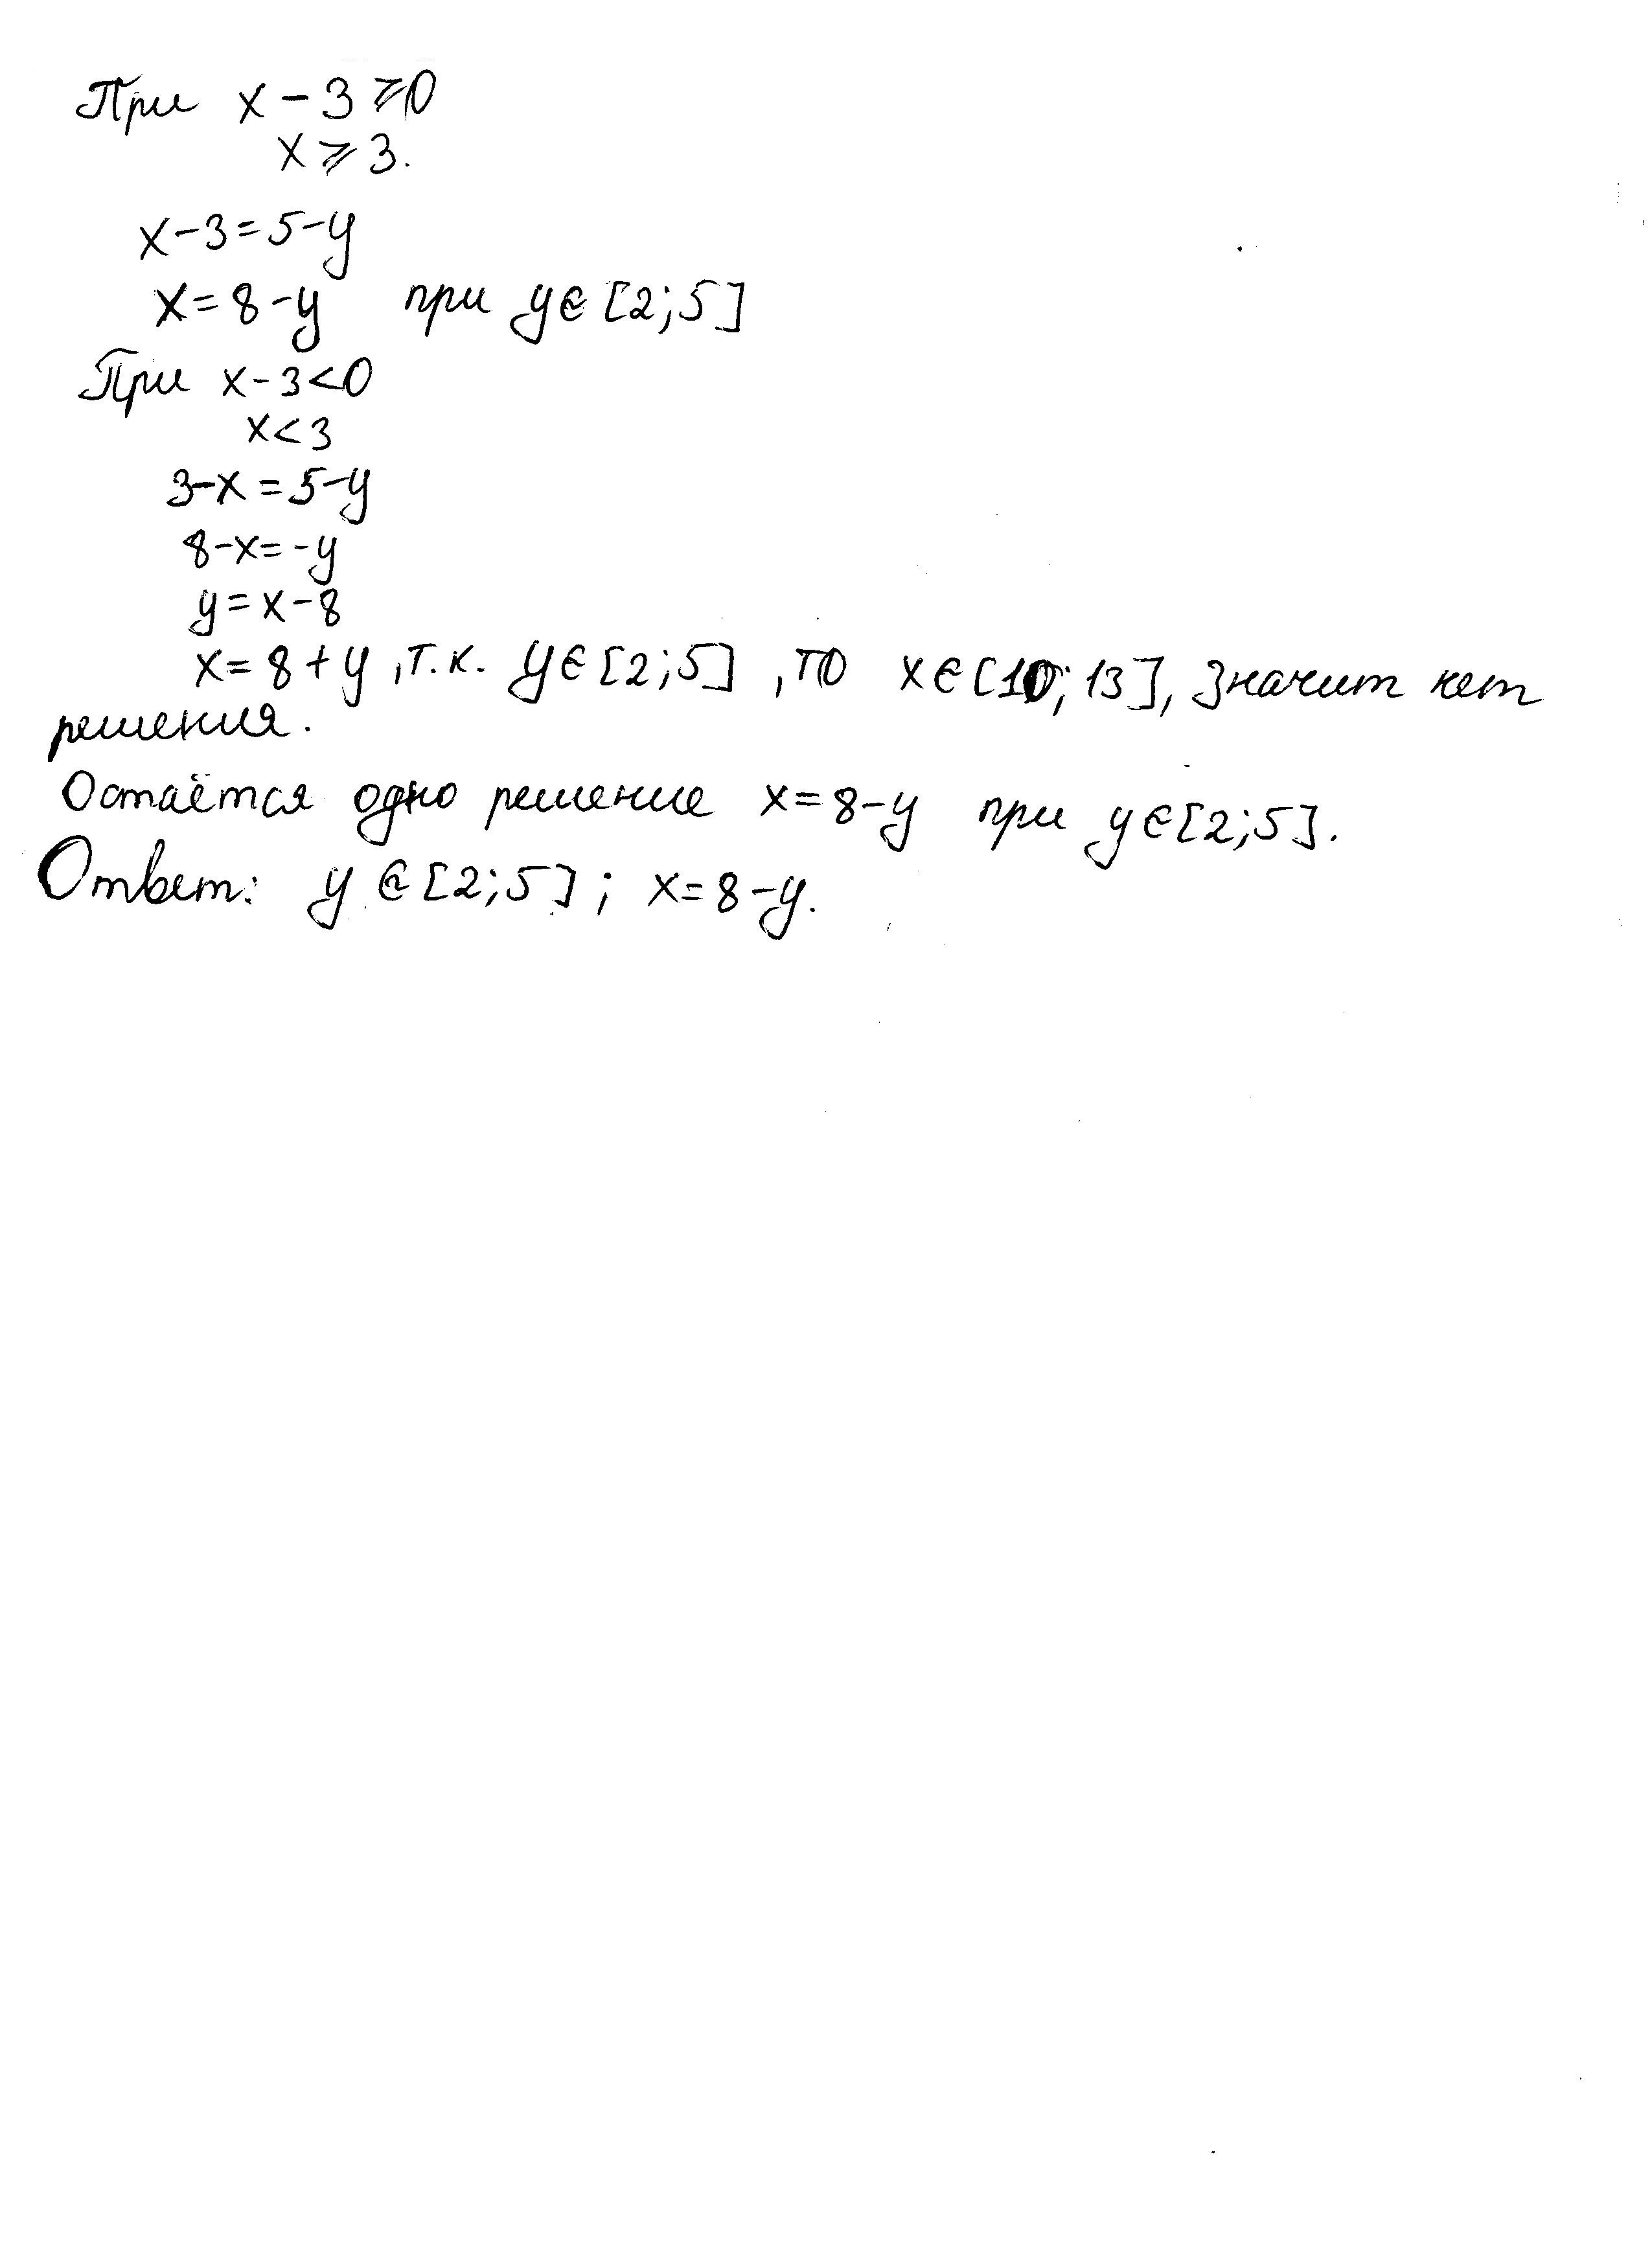 При x - 3 ⩾ 0
x ⩾ 3.
x - 3 = 5 - y
x = 8 - y при y ∈ [2; 5]
При x - 3 < 0
x < 3
3 - x = 5 - y
8 - x = - y
y = x - 8
x = 8 + y, т.к. y ∈ [2; 5], то x ∈ [10; 13], значит нет
решения.
Остаётся одно решение x = 8 - y при y ∈ [2; 5].
Ответ: y ∈ [2; 5]; x = 8 - y.